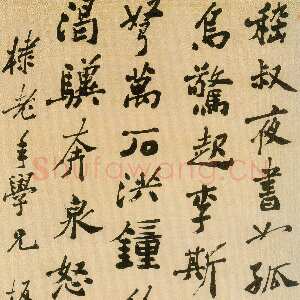 嵇叔夜書如孤
鳥驚起李斯
弩萬石洪鐘
渴驥奔泉怒
棣老年學兄
Shufawang.CN